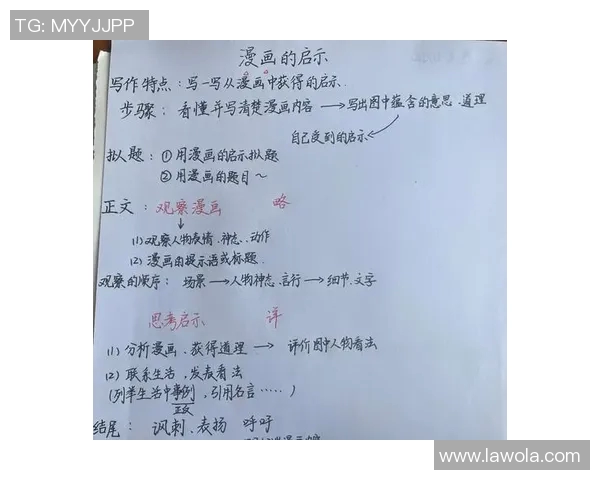 TG: MYYJJPP
漫画的启示
写作特点：写一写从漫画中获得的启示.
步骤：看懂并写清楚漫画内容 → 写出图中蕴含的意思、道理
自己受到的启示
拟人题：① 用漫画的启示拟题
② 用漫画的题目～
正文：观察漫画 略
↓
(1) 观察人物表情、神态、动作
(2) 漫画由提示语或标题.
观察的顺序：场景 → 人物神态、言行 → 细节、文字
思考启示 详
(1) 分析漫画、获得道理 → 评价图中人物看法
(2) 联系生活，发表看法
(列举生活中事例，引用名言……)
正反
结尾：讽刺、表扬 呼吁
www.lawola.com